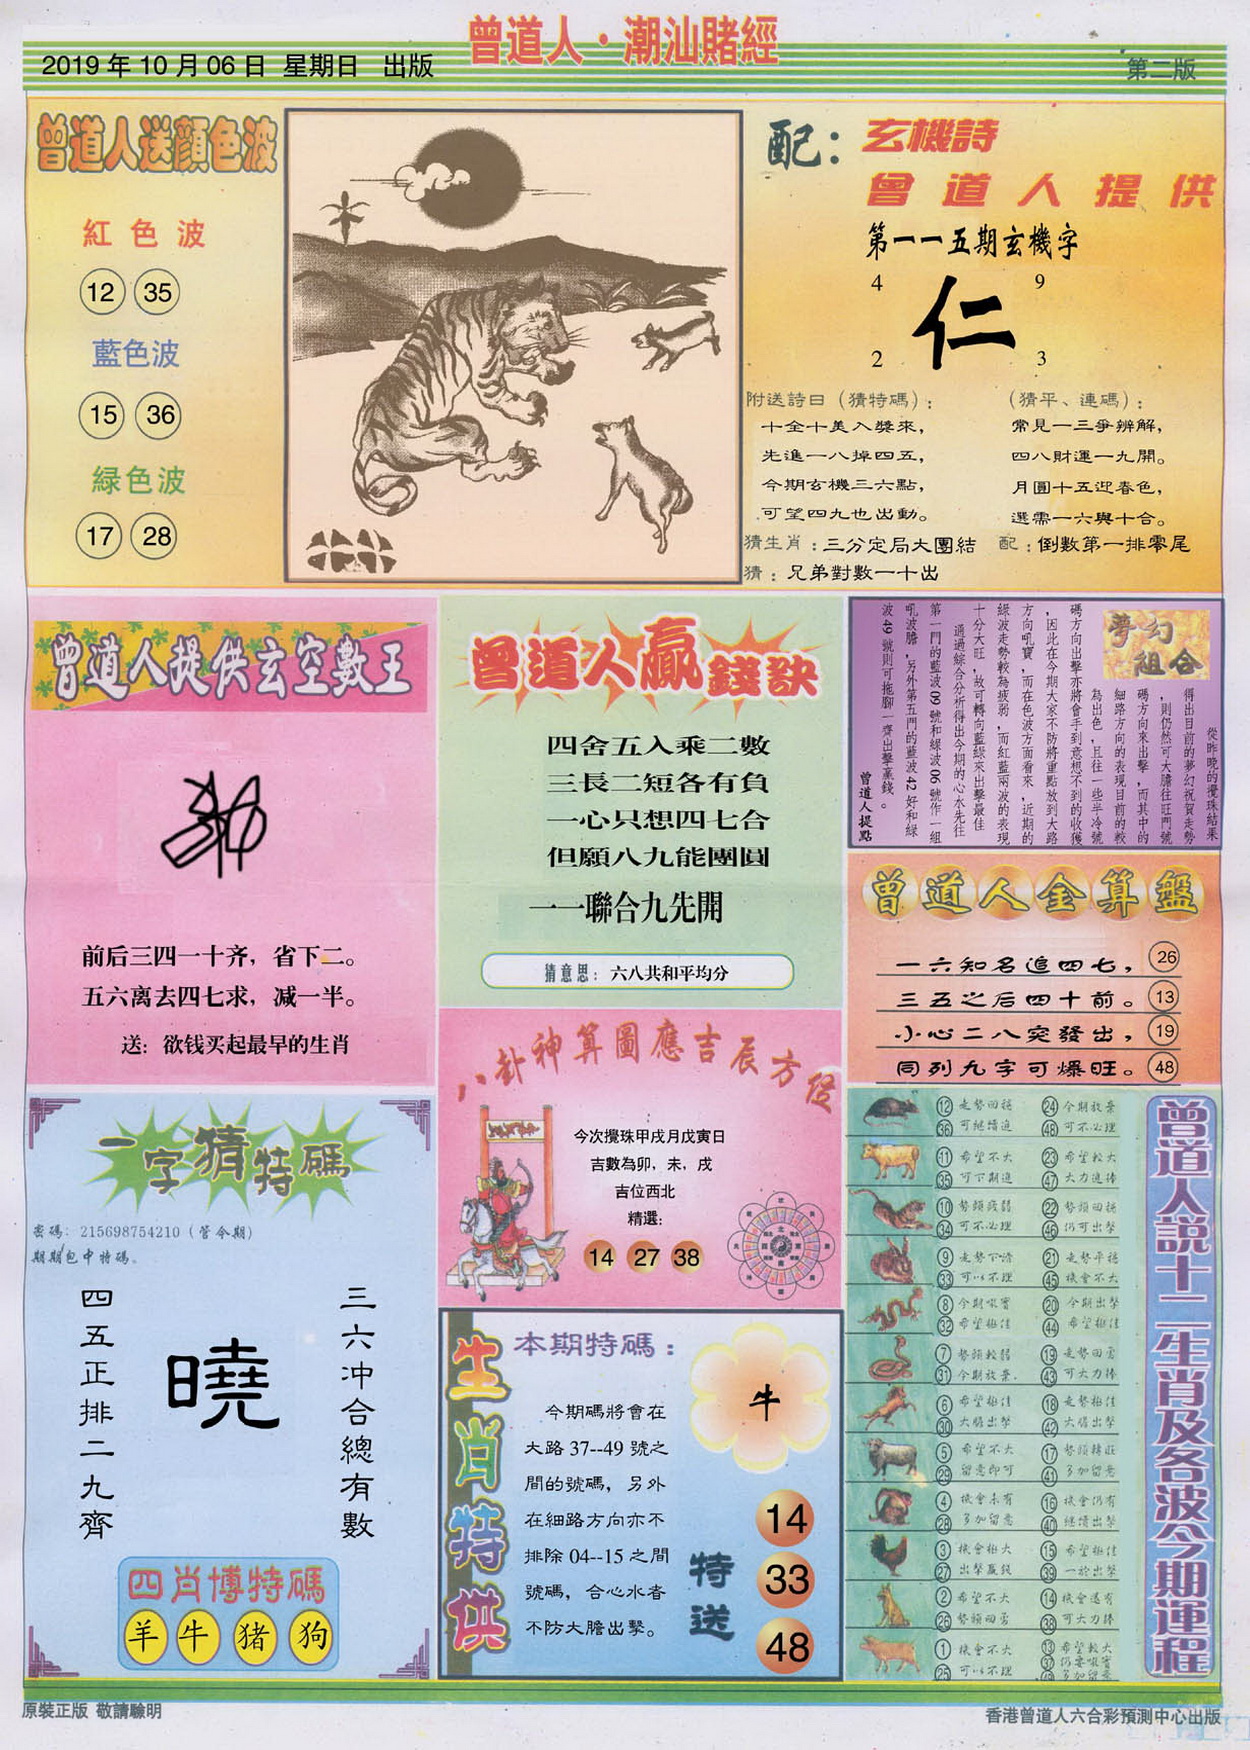 曾道人·潮汕賭經
2019 年 10 月 06 日 星期日 出版
第二版
曾道人送顔色波
紅色波
12 35
藍色波
15 36
緑色波
17 28
配：玄機詩
曾道人提供
第一一五期玄機字
4 9
仁
2 3
附送詩曰（猜特碼）：
十全十美入獎來，
先進一八掉四五，
今期玄機三六點，
可望四九也出動。
（猜平、連碼）：
常見一三爭辨解，
四八財運一九開。
月圓十五迎春色，
選需一六與十合。
猜生肖：三分定局大團結
配：倒數第一排零尾
猜：兄弟對數一十出
曾道人提供玄空數王
前后三四一十齐，省下二。
五六离去四七求，减一半。
送：欲钱买起最早的生肖
曾道人贏錢訣
四舍五入乘二數
三長二短各有負
一心只想四七合
但願八九能團圓
一一聯合九先開
猜意思：六八共和平均分
夢幻組合
從昨晚的攪珠結果
得出目前的夢幻祝賀走勢
，則仍然可大膽往旺門號
碼方向來出擊，而其中的
細路方向的表現目前的較
為出色，且往一些半冷號
碼方向出擊亦將會手到意想不到的收獲
，因此在今期大家不防將重點放到大路
方向吼寶，而在色波方面看來，近期的
綠波走勢較為疲弱，而紅藍兩波的表現
十分大旺，故可轉向藍綠來出擊最佳
通過綜合分析得出今期的心水先往
第一門的藍波 09 號和綠波 06 號作一組
吼波膽，另外第五門的藍波 42 好和綠
波 49 號則可拖腳一齊出擊贏錢。
曾道人提點
曾道人金算盤
一六知名追四七， 26
三五之后四十前。 13
小心二八突發出， 19
同列九字可爆旺。 48
八卦神算圖應吉辰方位
今次攪珠甲戌月戊寅日
吉數為卯，未，戌
吉位西北
精選：
14 27 38
一字猜特碼
密碼：215698754210（管令期）
期期包中特碼。
三六冲合總有數
曉
四五正排二九齊
四肖博特碼
羊 牛 猪 狗
生肖特供
本期特碼：
牛
今期碼將會在
大路 37--49 號之
間的號碼，另外
在細路方向亦不
排除 04--15 之間
號碼，合心水者
不防大膽出擊。
特送
14
33
48
曾道人説十二生肖及各波今期運程
12 走勢回穩 24 今期放棄
36 可繼續追 48 可不必理
11 希望不大 23 希望較大
35 可下期追 47 大力追捧
10 勢頭疲弱 22 勢頭回穩
34 可不必理 46 仍可出擊
9 走勢下滑 21 走勢平穩
33 可以不理 45 機會不大
8 今期吸寶 20 今期出擊
32 希望極佳 44 希望極佳
7 勢頭較弱 19 走勢回勇
31 今期放棄. 43 可大力捧
6 希望極佳 18 走勢極佳
30 大膽出擊 42 大膽出擊
5 希望不大 17 勢頭轉旺
29 留意即可 41 多加留意
4 機會未有 16 機會仍有
28 多加留意 40 繼續出擊
3 機會極大 15 希望極佳
27 出擊贏錢 39 一於出擊
2 希望不大 14 機會還有
26 勢頭回勇 38 可大力捧
1 機會不大 13 希望較大
25 可以不理 37 仍要吸寶
49 多加留意
原裝正版 敬請驗明
香港曾道人六合彩預測中心出版